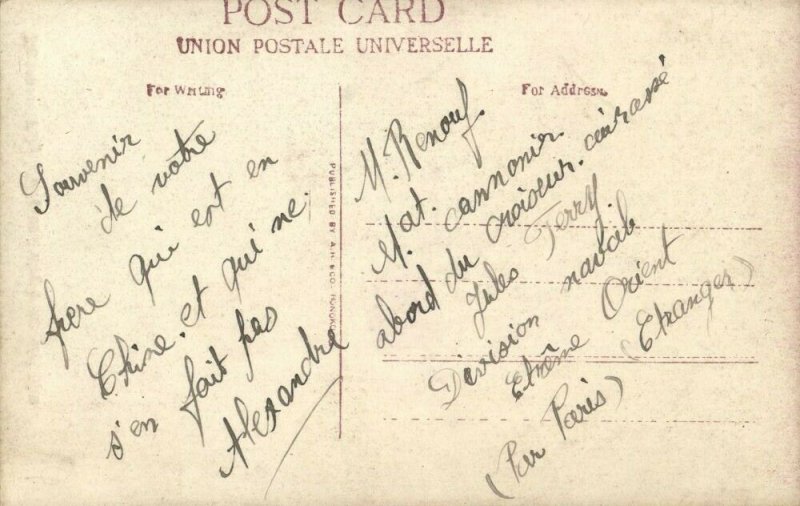 POST CARD
UNION POSTALE UNIVERSELLE
For Writing
For Address.
Souvenir
de votre
frere qui est en
Chine. et qui ne.
s'en fait pas
Alexandre
PUBLISHED BY A.H. & CO. HONGKONG
M. Renouf.
Mat. cannonier
abord du croiseur. cuirassé
Jules Ferry.
Division navale
Etrême Orient
(Etranger)
(Par Paris)